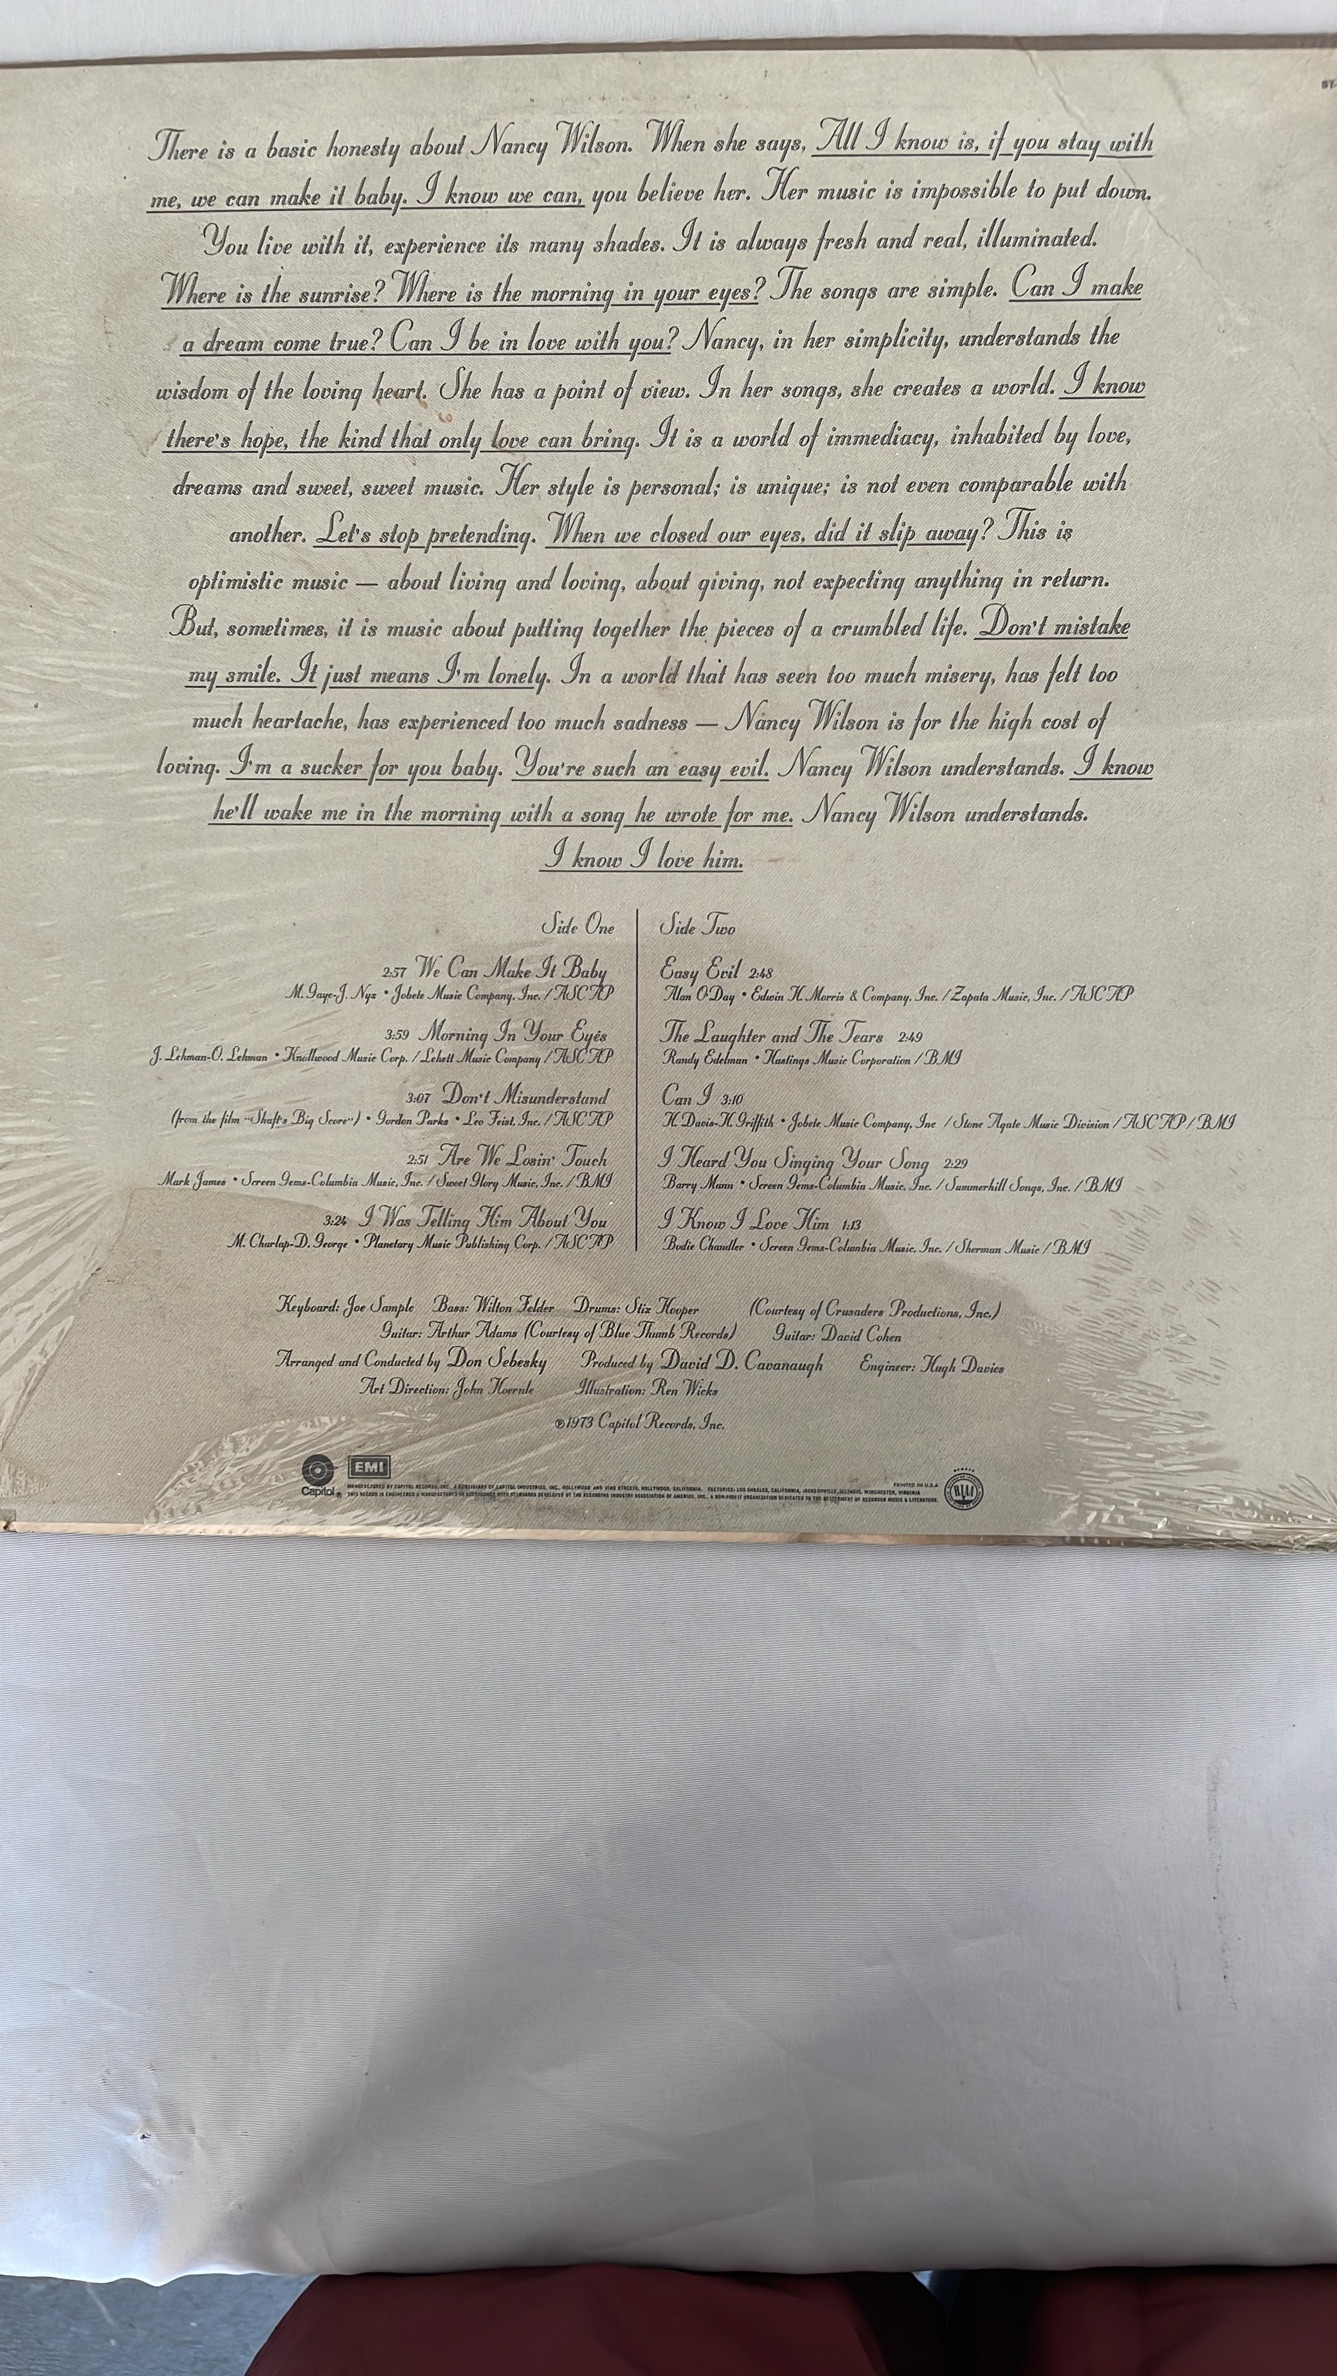 ST-
There is a basic honesty about Nancy Wilson. When she says, All I know is, if you stay with
me, we can make it baby. I know we can, you believe her. Her music is impossible to put down.
You live with it, experience its many shades. It is always fresh and real, illuminated.
Where is the sunrise? Where is the morning in your eyes? The songs are simple. Can I make
a dream come true? Can I be in love with you? Nancy, in her simplicity, understands the
wisdom of the loving heart. She has a point of view. In her songs, she creates a world. I know
there's hope, the kind that only love can bring. It is a world of immediacy, inhabited by love,
dreams and sweet, sweet music. Her style is personal; is unique; is not even comparable with
another. Let's stop pretending. When we closed our eyes, did it slip away? This is
optimistic music — about living and loving, about giving, not expecting anything in return.
But, sometimes, it is music about putting together the pieces of a crumbled life. Don't mistake
my smile. It just means I'm lonely. In a world that has seen too much misery, has felt too
much heartache, has experienced too much sadness — Nancy Wilson is for the high cost of
loving. I'm a sucker for you baby. You're such an easy evil. Nancy Wilson understands. I know
he'll wake me in the morning with a song he wrote for me. Nancy Wilson understands.
I know I love him.
Side One
2:57 We Can Make It Baby
M. Gaye-J. Nyx • Jobete Music Company, Inc. / ASCAP
3:59 Morning In Your Eyes
J. Lehman-O. Lehman • Knollwood Music Corp. / Lehett Music Company / ASCAP
3:07 Don't Misunderstand
(from the film "Shaft's Big Score") • Gordon Parks • Leo Feist, Inc. / ASCAP
2:51 Are We Losin' Touch
Mark James • Screen Gems-Columbia Music, Inc. / Sweet Glory Music, Inc. / BMI
3:24 I Was Telling Him About You
M. Charlap-D. George • Planetary Music Publishing Corp. / ASCAP
Side Two
Easy Evil 2:48
Alan O'Day • Edwin H. Morris & Company, Inc. / Zapata Music, Inc. / ASCAP
The Laughter and The Tears 2:49
Randy Edelman • Hastings Music Corporation / BMI
Can I 3:10
H. Davis-H. Griffith • Jobete Music Company, Inc / Stone Agate Music Division / ASCAP / BMI
I Heard You Singing Your Song 2:29
Barry Mann • Screen Gems-Columbia Music, Inc. / Summerhill Songs, Inc. / BMI
I Know I Love Him 1:13
Bodie Chandler • Screen Gems-Columbia Music, Inc. / Sherman Music / BMI
Keyboard: Joe Sample Bass: Wilton Felder Drums: Stix Hooper (Courtesy of Crusaders Productions, Inc.)
Guitar: Arthur Adams (Courtesy of Blue Thumb Records) Guitar: David Cohen
Arranged and Conducted by Don Sebesky Produced by David D. Cavanaugh Engineer: Hugh Davies
Art Direction: John Hoernle Illustration: Ren Wicks
℗1973 Capitol Records, Inc.
Capitol® EMI
MANUFACTURED BY CAPITOL RECORDS, INC., A SUBSIDIARY OF CAPITOL INDUSTRIES, INC., HOLLYWOOD AND VINE STREETS, HOLLYWOOD, CALIFORNIA. FACTORIES: LOS ANGELES, CALIFORNIA, JACKSONVILLE, ILLINOIS, WINCHESTER, VIRGINIA PRINTED IN U.S.A.
THIS RECORD IS ENGINEERED & MANUFACTURED IN ACCORDANCE WITH STANDARDS DEVELOPED BY THE RECORDING INDUSTRY ASSOCIATION OF AMERICA, INC., A NON-PROFIT ORGANIZATION DEDICATED TO THE BETTERMENT OF RECORDED MUSIC & LITERATURE.